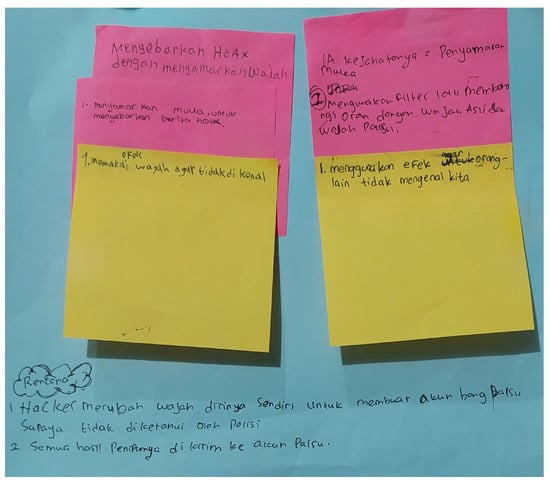 Menyebarkan HOAX
dengan menyamarkan wajah
1. menyamarkan muka, untuk
menyebarkan berita hoax.
efek
1. memakai wajah agar tidak di kenal
IA kejahatanya = Penyamaran
muka
2 mengunakan filter lalu
orang dengan wajah Asli dan
wajah Palsu.
1. menggunakan efek agar orang-
lain tidak mengenal kita
Rencana
1 Hacker merubah wajah dirinya sendiri untuk membuat akun bang palsu
supaya tidak diketahui oleh Polisi.
2 Semua hasil Penipunya di kirim ke akun Palsu.